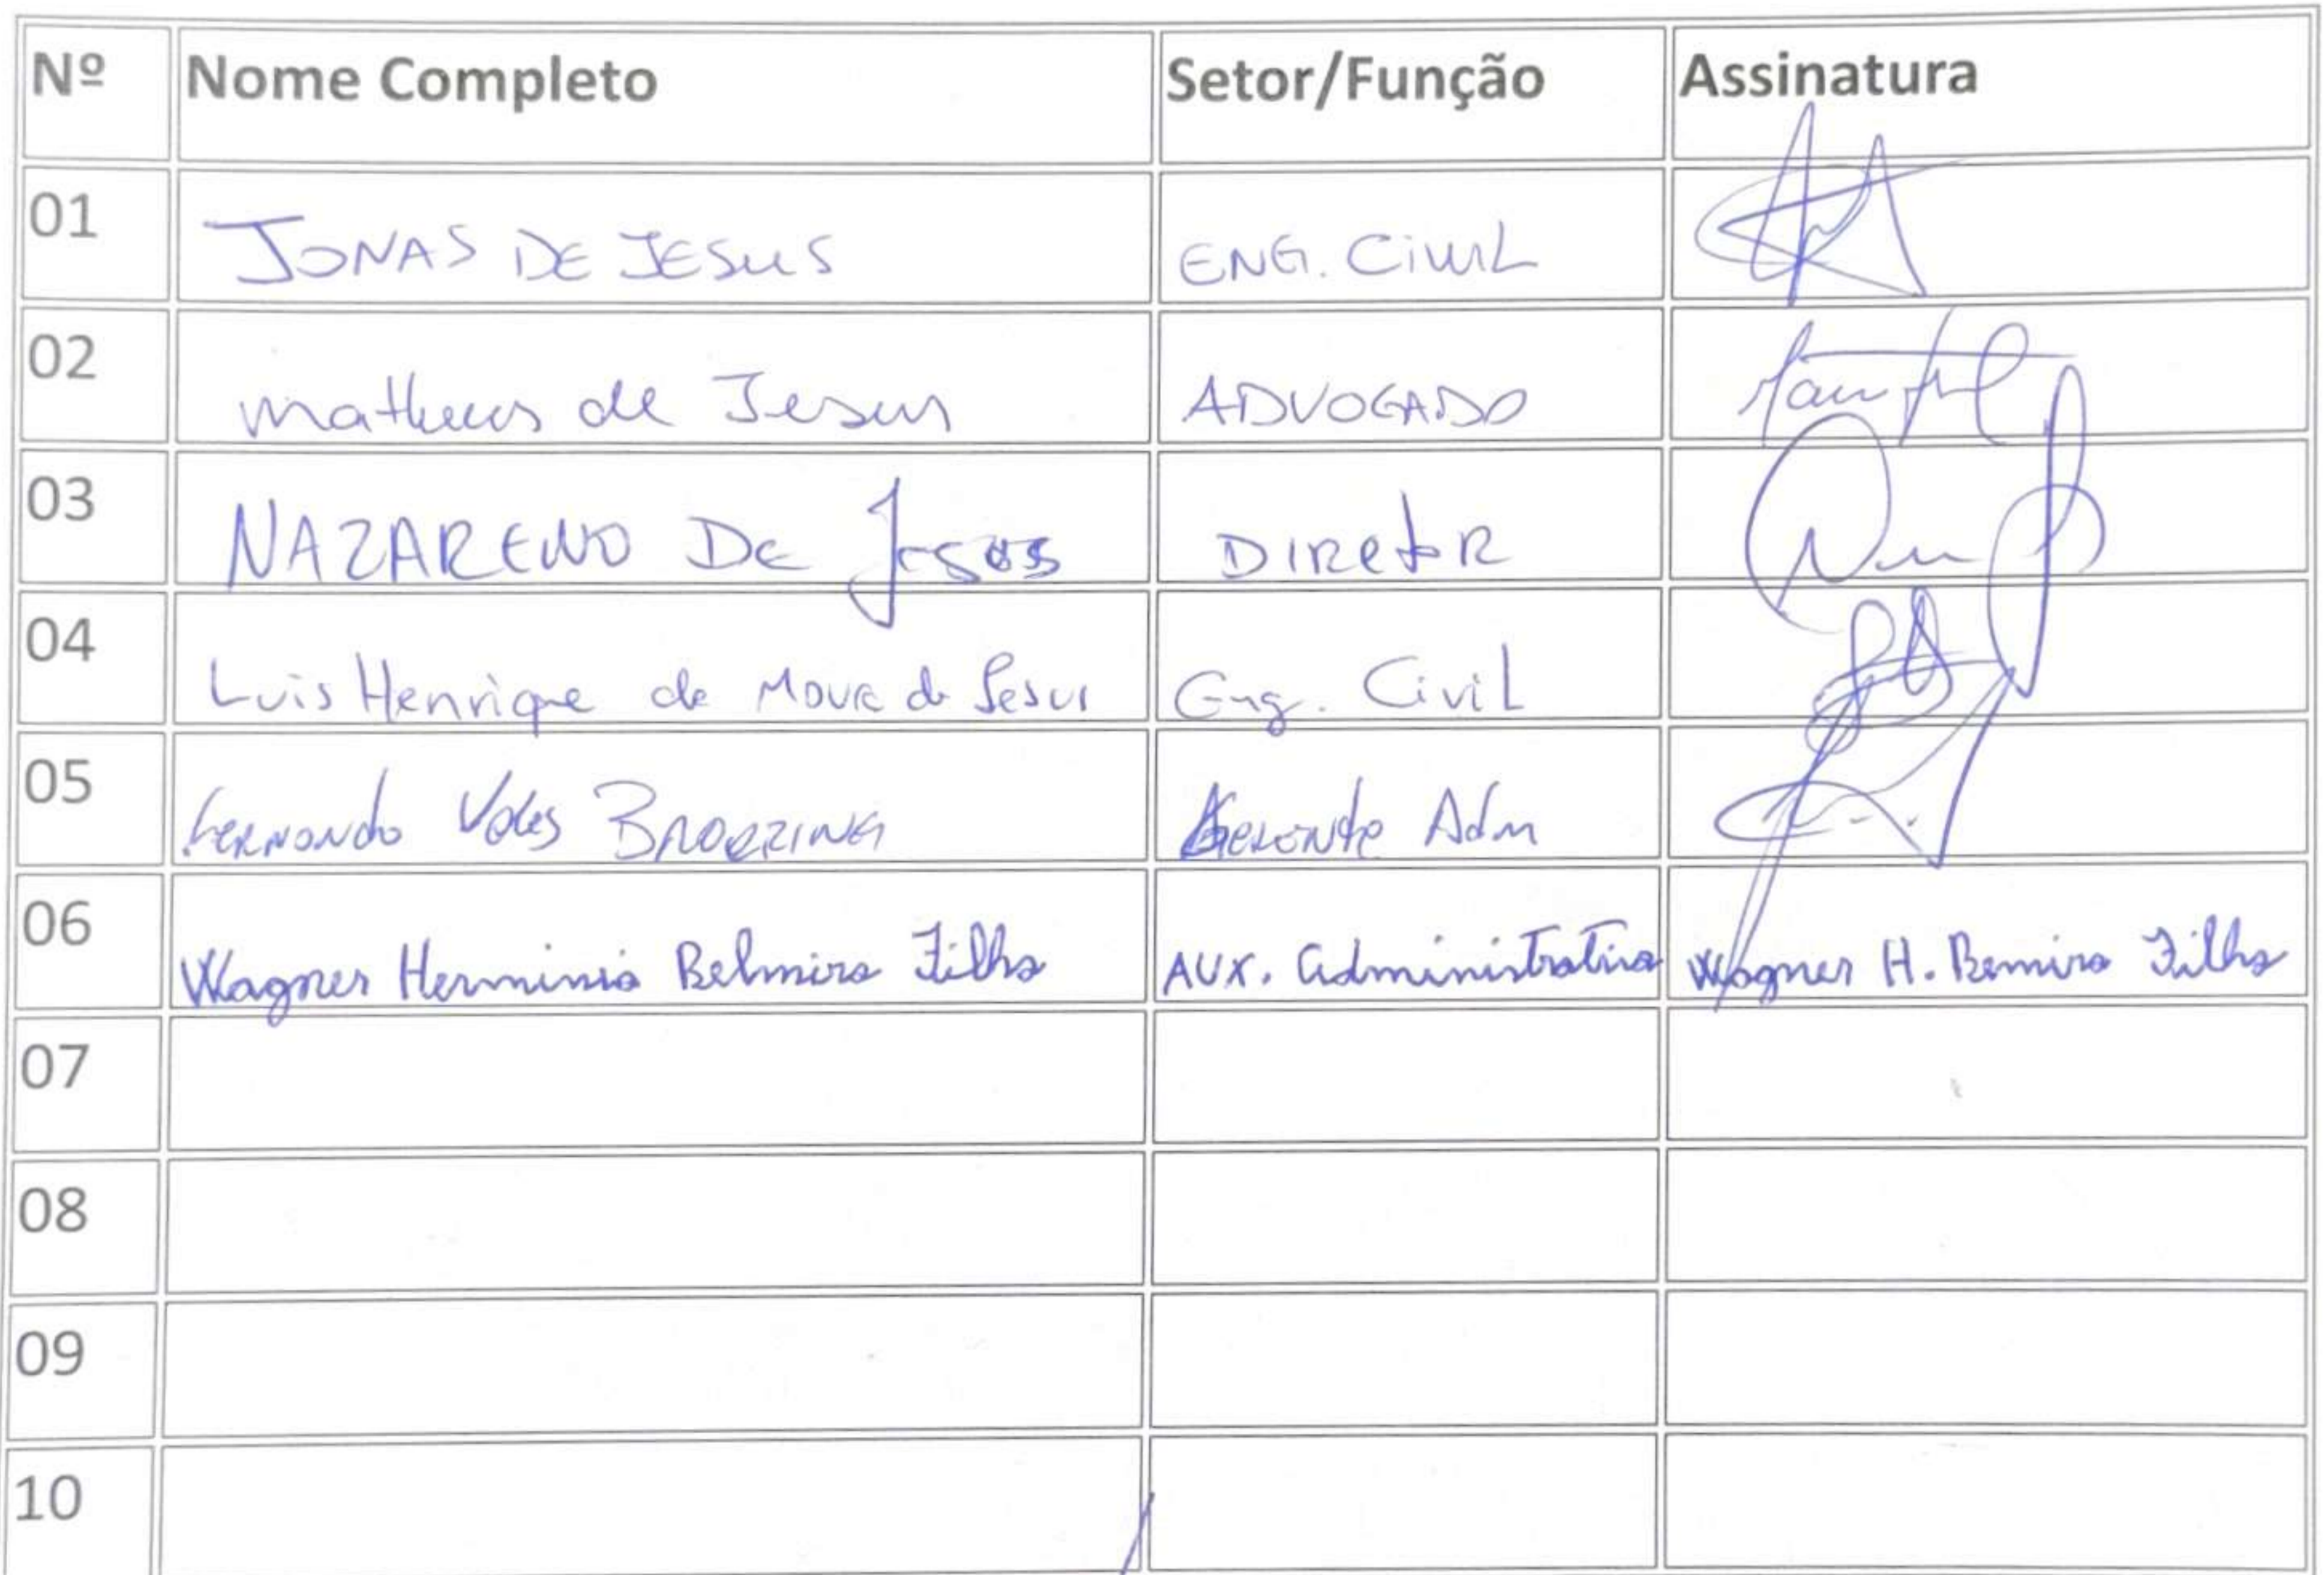 Nº Nome Completo Setor/Função Assinatura
01 JONAS DE JESUS ENG. CIVIL
02 matheus de Jesus ADVOGADO
03 NAZARENO De Jesus DIRetoR
04 Luis Henrique de Moura de Jesus Eng. Civil
05 Fernando Gerente Adm
06 Wagner Herminio Belmiro Filho AUX. Administrativo Wagner H. Bemiro Filho
07
08
09
10